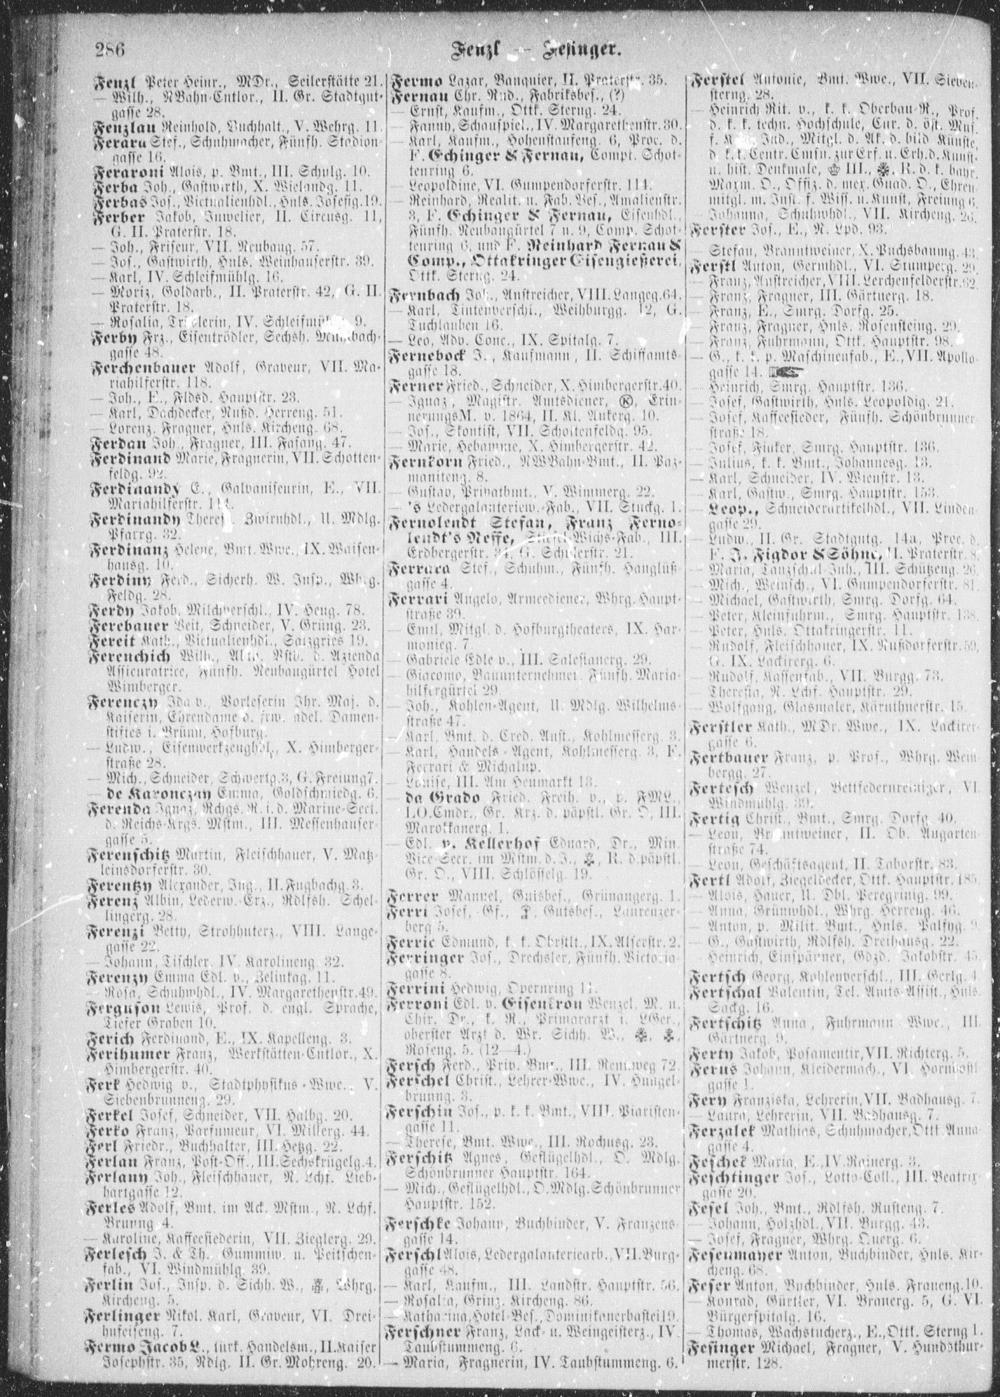 286
Fenzl — Fesinger.
Fenzl Peter Heinr., MDr., Seilerstätte 21.
— Wilh., NBahn-Cntlor., II. Gr. Stadtgut-
gasse 28.
Fenzlau Reinhold, Buchhalt., V. Wehrg. 11.
Feraru Stef., Schuhmacher, Fünfh. Stadion-
gasse 16.
Feraroni Alois, p. Bmt., III. Schulg. 10.
Ferba Joh., Gastwirth, X. Wielandg. 11.
Ferbas Jos., Victualienhdl., Hnls. Josefig. 19.
Ferber Jakob, Juwelier, II. Circusg. 11,
G. II. Praterstr. 18.
— Joh., Friseur, VII. Neubaug. 57.
— Jos., Gastwirth, Hnls. Weinhauserstr. 39.
— Karl, IV. Schleifmühlg. 16.
— Moriz, Goldarb., II. Praterstr. 42, G. II.
Praterstr. 18.
— Rosalia, IV. 9.
Ferby Frz., Eisentrödler, Sechsh.
gasse 48.
Ferchenbauer Adolf, Graveur, VII. Ma-
riahilferstr. 118.
— Joh., E., Fldsd. Herrenstr. 23.
— Karl, Dachdecker, Nußd. Herreng. 51.
— Lorenz, Fragner, Hnls. Kircheng. 68.
Ferdan Joh., Fragner, III. Fasang. 47.
Ferdinand Marie, Fragnerin, VII. Schotten-
feldg. 92.
Ferdinandy E., Galvaniseurin, E., VII.
Mariahilferstr.
Ferdinandy Zwirnhdl., U. Mdlg.
Pfarrg. 32.
Ferdinanz Helene, Bmt. Wwe., IX. Waisen-
hausg. 10.
Ferdiny Ferd., Sicherh. W. Insp., Whrg.
Feldg. 28.
Ferdy Jakob, Milchverschl., IV. Heug. 78.
Ferebauer Veit, Schneider, V. Grüng. 23.
Fereit Kath., Victualienhdl., Salzgries 19.
Ferenchich Wilh., Vstb. d. Azienda
Assicuratrice, Fünfh. Neubaugürtel Hotel
Wimberger.
Ferenczy Ida v., Vorleserin Ihr. Maj. d.
Kaiserin, Ehrendame d. frw. adel. Damen-
stiftes i. Brünn, Hofburg.
— Ludw., X. Himberger-
straße 28.
— Mich., Schneider, Schwertg. 3, G. Freiung 7.
— de Karonczay Emma, Goldschmiedg. 6.
Ferenda Ignaz, Rchgs. R. i. d. Marine-Sect.
d. Reichs-Krgs. Mstm., III. Messenhauser-
gasse 5.
Ferenschitz Martin, Fleischhauer, V. Matz-
leinsdorferstr. 30.
Ferentzy Alexander, Ing., II. Fugbachg. 3.
Ferenz Albin, Lederw.-Erz., Rdlfsh. Schel-
lingerg. 28.
Ferenzi Betty, Strohhuterz., VIII. Lange-
gasse 22.
— Johann, Tischler, IV. Karolineng. 32.
Ferenzy Emma Edl. v., Zelinkag. 11.
— Rosa, Schuhwhdl., IV. Margarethenstr. 49.
Ferguson Lewis, Prof. d. engl. Sprache,
Tiefer Graben 10.
Ferich Ferdinand, E., IX. Kapelleng. 3.
Ferihumer Franz, Werkstätten-Cntlor., X.
Himbergerstr. 40.
Ferk Hedwig v., Stadtphysikus-Wwe., V.
Siebenbrunneng. 29.
Ferkel Josef, Schneider, VII. Halbg. 20.
Ferko Franz, Parfumeur, VI. Millerg. 44.
Ferl Friedr., Buchhalter, III. Hetzg. 22.
Ferlan Franz, Post-Off., III. Sechskrügelg. 4.
Ferlany Joh., Fleischhauer, N. Lchf. Lieb-
hartgasse 12.
Ferles Adolf, Bmt. im Ack. Mstm., N. Lchf.
Brunng. 4.
— Karoline, Kaffeesiederin, VII. Zieglerg. 29.
Ferlesch J. & Th., Gummiw. u. Peitschen-
fab., VI. Windmühlg. 39.
Ferlin Jos., Insp. d. Sichh. W., Whrg.
Kircheng. 5.
Ferlinger Nikol. Karl, Graveur, VI. Drei-
hufeiseng. 7.
Fermo Jacob L., türk. Handelsm., II. Kaiser
Josephstr. 35, Ndlg. II. Gr. Mohreng. 20.
Fermo Lazar, Banquier, II. Praterstr. 35.
Fernau Chr. Rud., Fabriksbes., (?)
— Ernst, Kaufm., Ottk. Sterng. 24.
— Fanny, Schauspiel., IV. Margarethenstr. 30.
— Karl, Kaufm., Hohenstaufeng. 6, Proc. d.
F. Echinger & Fernau, Compt. Schot-
tenring 6.
— Leopoldine, VI. Gumpendorferstr. 114.
— Reinhard, Realit. u. Fab. Bes., Amalienstr.
3, F. Echinger & Fernau, Eisenhdl.,
Fünfh. Neubaugürtel 7 u. 9, Comp. Schot-
tenring 6, und F. Reinhard Fernau &
Comp., Ottakringer Eisengießerei,
Ottk. Sterng. 24.
Fernbach Joh., Anstreicher, VIII. Langeg. 64.
— Karl, Tintenverschl., Weihburgg. 12, G.
Tuchlauben 16.
— Leo, Adv. Conc., IX. Spitalg. 7.
Fernebock J., Kaufmann, II. Schiffamts-
gasse 18.
Ferner Fried., Schneider, X. Himbergerstr. 40.
— Ignaz, Magistr. Amtsdiener, Ⓚ, Erin-
nerungsM. v. 1864, II. Kl. Ankerg. 10.
— Jos., Skontist, VII. Schottenfeldg. 95.
— Marie, Hebamme, X. Himbergerstr. 42.
Fernkorn Fried., NWBahn-Bmt., II. Paz-
maniteng. 8.
— Gustav, Privatbmt., V. Wimmerg. 22.
— 's Ledergalanteriew.-Fab., VII. Stuckg. 1.
Fernolendt Stefan, Franz Ferno-
lendt's Neffe, Wichs-Fab., III.
Erdbergerstr. 34, G. Schulerstr. 21.
Ferraca Stef., Schuhm., Fünfh. Hauglüß-
gasse 4.
Ferrari Angelo, Armeediener, Whrg. Haupt-
straße 39.
— Emil, Mitgl. d. Hofburgtheaters, IX. Har-
monieg. 7.
— Gabriele Edle v., III. Salesianerg. 29.
— Giacomo, Bauunternehmer, Fünfh. Maria-
hilfergürtel 29.
— Joh., Kohlen-Agent, U. Mdlg. Wilhelms-
straße 47.
— Karl, Bmt. d. Cred. Anst., Kohlmesserg. 3.
— Karl, Handels-Agent, Kohlmesserg. 3, F.
Ferrari & Michalup.
— Louise, III. Am Heumarkt 13.
— da Grado Fried. Freih. v., p. FML.,
LO. Cmdr., Gr. Krz. d. päpstl. Gr. O, III.
Marokkanerg. 1.
— Edl. v. Kellerhof Eduard, Dr., Min.
Vice-Secr. im Mstm. d. J., R. d. päpstl.
Gr. O., VIII. Schlösselg. 19.
Ferrer Manuel, Gutsbes., Grünangerg. 1.
Ferri Josef, Gf., Gutsbes., Laurenzer-
berg 5.
Ferric Edmund, k. k. Obrstlt., IX. Alserstr. 2.
Ferringer Jos., Drechsler, Fünfh. Victoria-
gasse 8.
Ferrini Hedwig, Opernring 11.
Ferroni Edl. v. Eisenkron Wenzel, M. u.
Chir. Dr., k. R., Primararzt i. LGer.,
oberster Arzt d. Wr. Sichh. W.,
Roseng. 5. (12—4.)
Fersch Ferd., Priv. Bmt., III. Rennweg 72.
Ferschel Christ., Lehrer-Wwe., IV. Hungel-
brunng. 3.
Ferschin Jos., p. k. k. Bmt., VIII. Piaristen-
gasse 11.
— Therese, Bmt. Wwe., III. Rochusg. 23.
Ferschitz Agnes, Geflügelhdl., O. Mdlg.
Schönbrunner Hauptstr. 164.
— Mich., Geflügelhdl., O. Mdlg. Schönbrunner
Hauptstr. 152.
Ferschke Johann, Buchbinder, V. Franzens-
gasse 14.
Ferschl Alois, Ledergalanteriearb., VII. Burg-
gasse 48.
— Karl, Kaufm., III. Landstr. Hauptstr. 56.
— Rosalia, Grinz. Kircheng. 86.
— Katharina, Hotel-Bes., Dominikanerbastei 19.
Ferschner Franz, Lack- u. Weingeisterz., IV.
Taubstummeng. 6.
— Maria, Fragnerin, IV. Taubstummeng. 6.
Ferstel Antonie, Bmt. Wwe., VII. Sieben-
sterng. 28.
— Heinrich Rit. v., k. k. Oberbau-R., Prof.
d. k. k. techn. Hochschule, Cur. d. öst. Mus.
f. K. Ind., Mitgl. d. Ak. d. bild. Künste,
d. k. k. Centr. Cmsn. zur Erf. u. Erh. d. Kunst-
u. hist. Denkmale, III., R. d. k. bayr.
Maxm. O., Offiz. d. mex. Guad. O., Ehren-
mitgl. m. Inst. f. Wiss. u. Kunst, Freiung 6.
— Johanna, Schuhwhdl., VII. Kircheng. 26.
Ferster Jos., E., N. Lpd. 93.
— Stefan, Branntweiner, X. Puchsbaumg. 43.
Ferstl Anton, Germhdl., VI. Stumperg. 29.
— Franz, Anstreicher, VIII. Lerchenfelderstr. 62.
— Franz, Fragner, III. Gärtnerg. 18.
— Franz, E., Smrg. Dorfg. 25.
— Franz, Fragner, Hnls. Rosensteing. 29.
— Franz, Fuhrmann, Ottk. Hauptstr. 98.
— G., k. k. p. Maschinenfab., E., VII. Apollo-
gasse 14.
— Heinrich, Smrg. Hauptstr. 136.
— Josef, Gastwirth, Hnls. Leopoldig. 21.
— Josef, Kaffeesieder, Fünfh. Schönbrunner-
straße 18.
— Josef, Fiaker, Smrg. Hauptstr. 136.
— Julius, k. k. Bmt., Johannesg. 13.
— Karl, Schneider, IV. Wienstr. 13.
— Karl, Gastw., Smrg. Hauptstr. 153.
— Leop., Schneiderartikelhdl., VII. Linden-
gasse 29.
— Ludw., II. Gr. Stadtgutg. 14a, Proc. d.
F. J. Figdor & Söhne, II. Praterstr. 8.
— Maria, Tanzschul-Inh., III. Schützeng. 26.
— Mich., Weinsch., VI. Gumpendorferstr. 81.
— Michael, Gastwirth, Smrg. Dorfg. 64.
— Peter, Kleinfuhrm., Smrg. Hauptstr. 138.
— Peter, Hnls. Ottakringerstr. 11.
— Rudolf, Fleischhauer, IX. Nußdorferstr. 59,
G. IX. Lackirerg. 6.
— Rudolf, Kassenfab., VII. Burgg. 73.
— Theresia, N. Lchf. Hauptstr. 29.
— Wolfgang, Glasmaler, Kärnthnerstr. 15.
Ferstler Kath., MDr. Wwe., IX. Lackirer-
gasse 6.
Fertbauer Franz, p. Prof., Whrg. Wein-
bergg. 27.
Fertesch Wenzel, Bettfedernreiniger, VI.
Windmühlg. 39.
Fertig Christ., Bmt., Smrg. Dorfg. 40.
— Leon, Branntweiner, II. Ob. Augarten-
straße 74.
— Leon, Geschäftsagent, II. Taborstr. 83.
Fertl Adolf, Ziegeldecker, Ottk. Hauptstr. 185.
— Alois, Hauer, U. Dbl. Peregrinig. 99.
— Anna, Grünwhdl., Whrg. Herreng. 46.
— Anton, p. Milit. Bmt., Hnls. Palfyg. 9.
— G., Gastwirth, Rdlfsh. Dreihausg. 22.
— Heinrich, Einspänner, Gdzd. Jakobstr. 45.
Fertsch Georg, Kohlenverschl., III. Gerlg. 4.
Fertschal Valentin, Tel. Amts-Assist., Hnls.
Sackg. 16.
Fertschitz Anna, Fuhrmann Wwe., III.
Gärtnerg. 9.
Ferty Jakob, Posamentir, VII. Richterg. 5.
Ferus Johann, Kleidermach., VI. Hornbostl-
gasse 1.
Fery Franziska, Lehrerin, VII. Badhausg. 7.
— Laura, Lehrerin, VII. Badhausg. 7.
Ferzalek Mathias, Schuhmacher, Ottk. Anna-
gasse 4.
Feschek Maria, E., IV. Rainerg. 3.
Feschtinger Jos., Lotto-Coll., III. Beatrix-
gasse 20.
Fesel Joh., Bmt., Rdlfsh. Rusteng. 7.
— Johann, Holzhdl., VII. Burgg. 43.
— Josef, Fragner, Whrg. Querg. 6.
Fesenmayer Anton, Buchbinder, Hnls. Kir-
cheng. 68.
Feser Anton, Buchbinder, Hnls. Fraueng. 10.
— Konrad, Gürtler, VI. Brauerg. 5, G. VI.
Bürgerspitalg. 16.
— Thomas, Wachstucherz., E., Ottk. Sterng. 1.
Fesinger Michael, Fragner, V. Hundsthur-
merstr. 128.